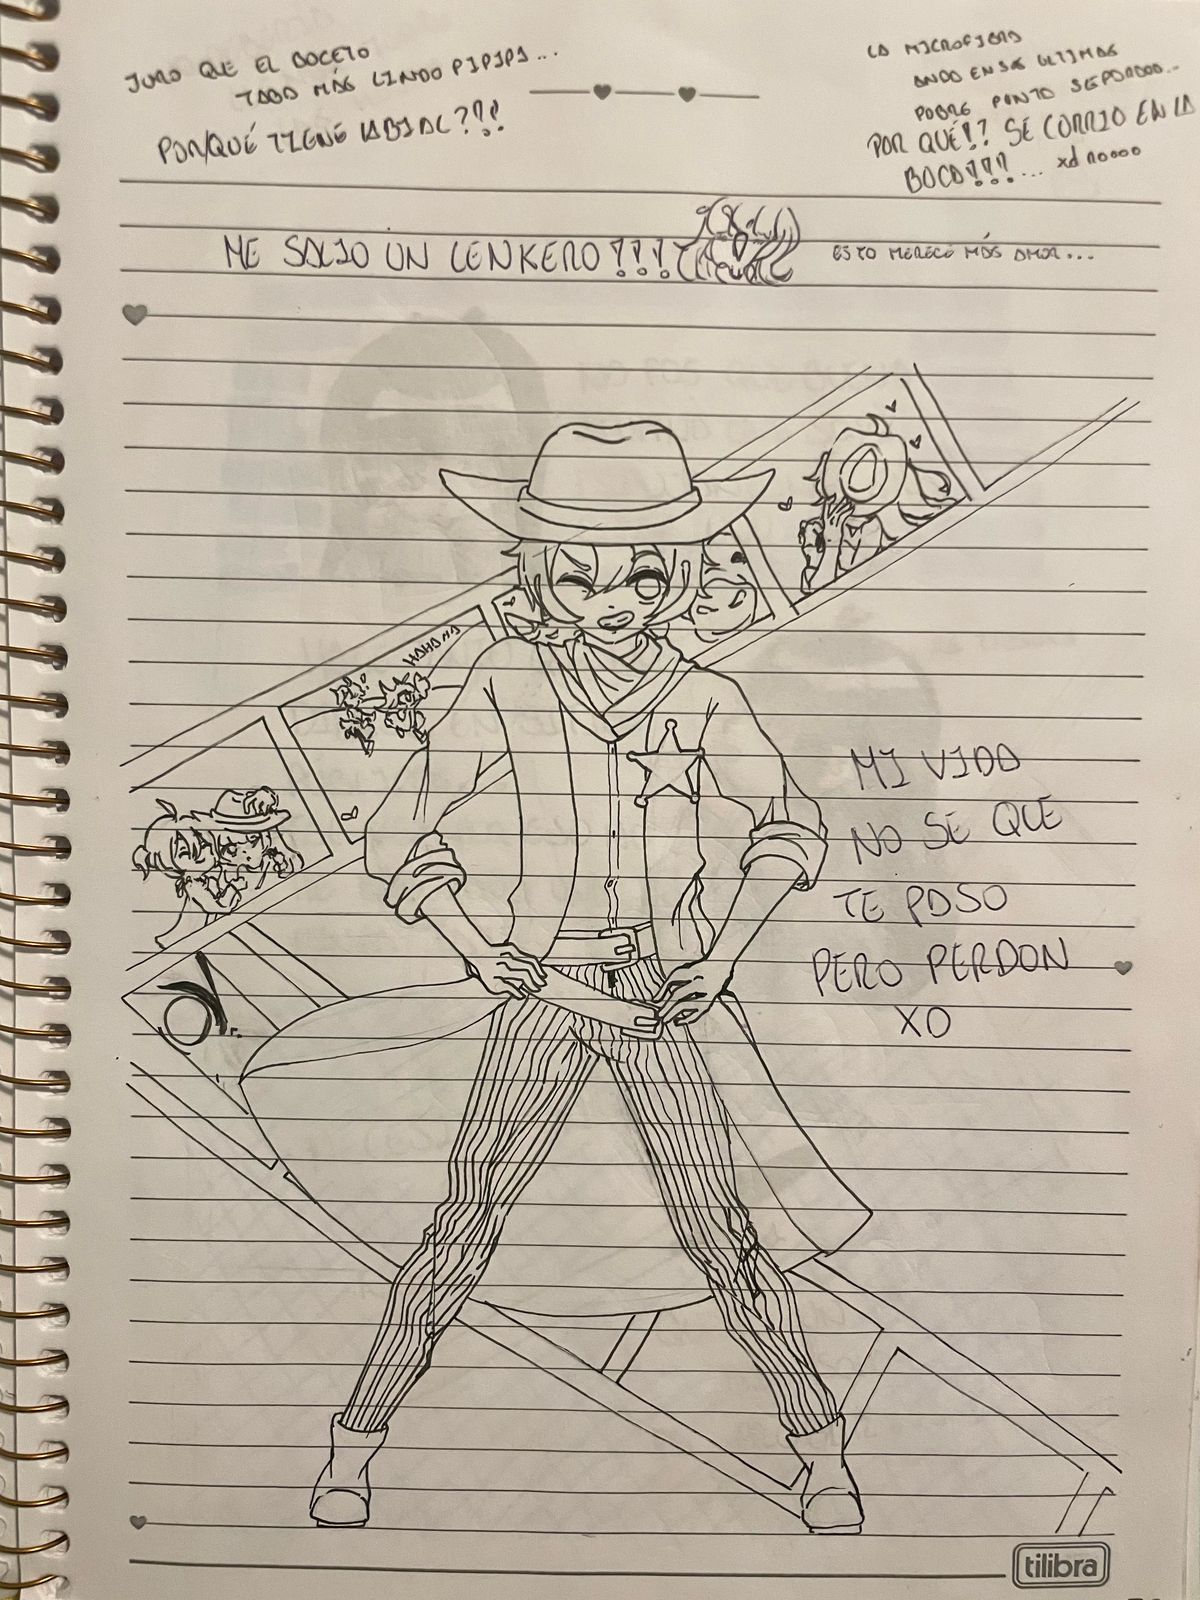 JURO QUE EL BOCETO
TABA MÁS LINDO PIPIPI...
PORQUÉ TIENE LABIAL???
LA MICROFIBRA
ANDA EN SUS ULTIMAS
POBRE PUNTO SEPARADO...
POR QUÉ!? SE CORRIO EN LA
BOCA???... xd noooo
ME SALIO UN LENKERO???
ESTO MERECE MÁS AMOR...
HAHAHA
MI VIDA
NO SE QUE
TE PASO
PERO PERDON
XO
tilibra